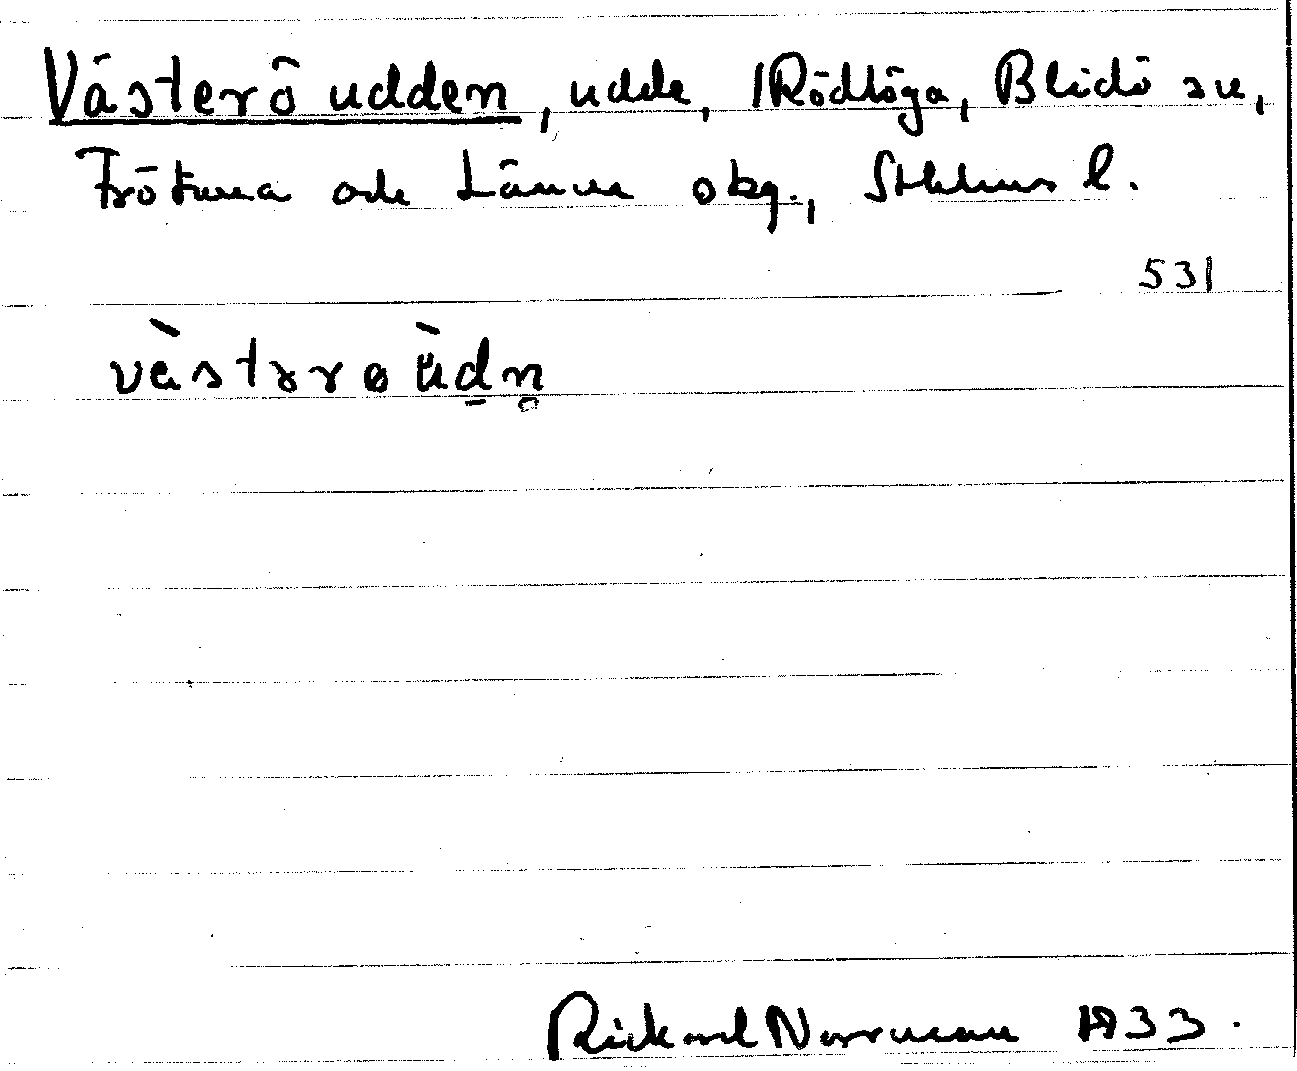 Västerö udden, udde, Rödlöga, Blidö sn,
Frötuna och Länna skg., Sthlms l.
531
Rickard Norrman 1933.